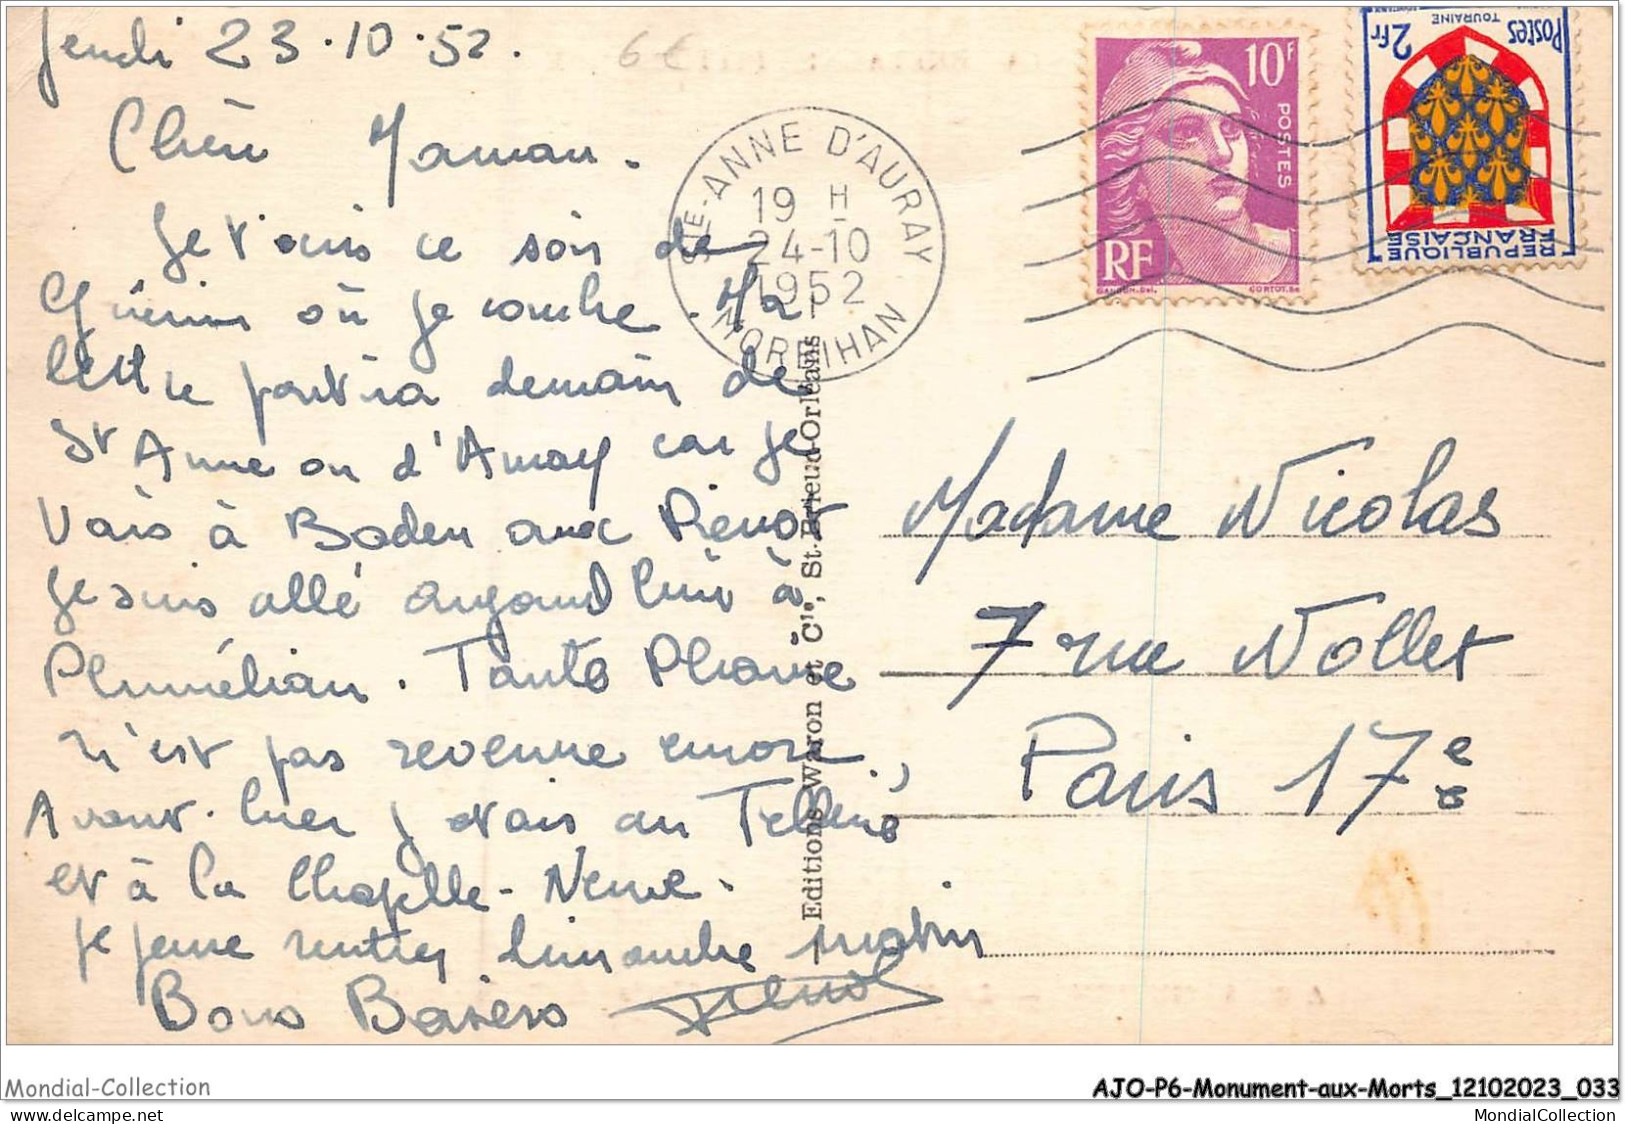 Jeudi 23.10.52.
6€
Chère Maman.
Je t'écris ce soir de
Guénin où je couche. Ma
lettre partira demain de
St Anne ou d'Auray car je
vais à Baden aux
Je suis allé aujourd'hui à
Pluméliau. Tante Phanie
n'est pas revenue encore.
Avant-hier j'étais au Telléné
et à la Chapelle-Neuve.
je pense rentrer dimanche matin
Bons Baisers
STE-ANNE D'AURAY
19 H
24-10
1952
MORBIHAN
10F
POSTES
RF
GANDON.Del.
CORTOT.Sc
Postes
2fr
TOURAINE
REPUBLIQUE
FRANÇAISE
Editions Waron et Cie, St-Brieuc-Orléans
Madame Nicolas
7 rue Nollet
Paris 17e
Mondial-Collection
AJO-P6-Monument-aux-Morts_12102023_033
MondialCollection